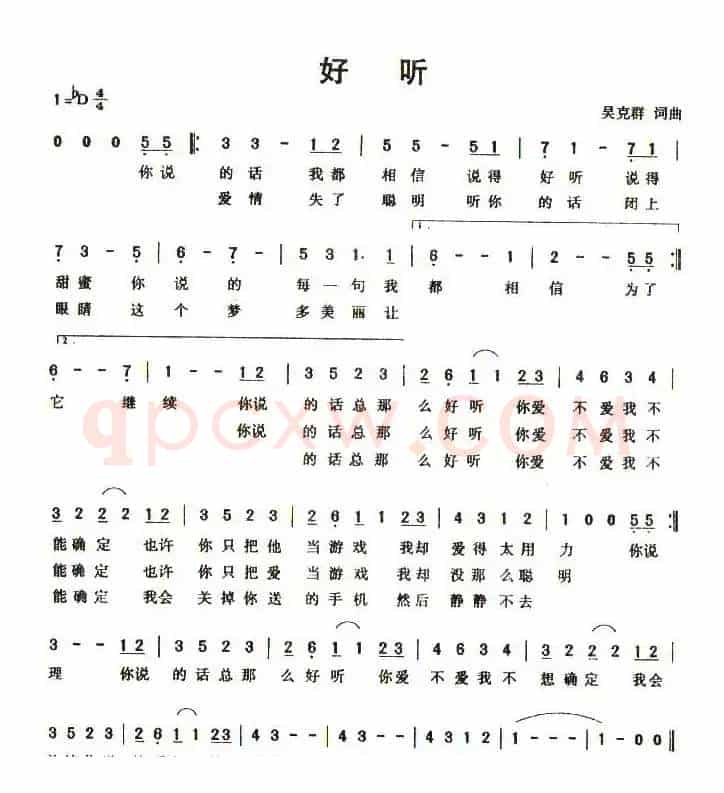 好 听
1=♭D 4/4
吴克群 词曲
0 0 0 5 5 ‖: 3 3 - 1 2 | 5 5 - 5 1 | 7 1 - 7 1 |
你说 的 话 我都 相 信 说得 好 听 说得
爱 情 失了 聪 明 听你 的 话 闭上
1.
7 3 - 5 | 6 - 7 - | 5 5 3 1. 1 | 6 - - 1 | 2 - - 5 5 :‖
甜 蜜 你 说 的 每 一 句 我 都 相 信 为了
眼 睛 这 个 梦 多 美 丽 让
2.
6 - - 7 | 1 - - 1 2 | 3 5 2 3 | 2 6 1 1 2 3 | 4 6 3 4 |
它 继 续 你说 的 话 总 那 么 好 听 你 爱 不 爱 我 不
你说 的 话 总 那 么 好 听 你 爱 不 爱 我 不
的 话 总 那 么 好 听 你 爱 不 爱 我 不
qpcxw.COM
3 2 2 2 1 2 | 3 5 2 3 | 2 6 1 1 2 3 | 4 3 - 4 | 1 0 0 5 5 :‖
能 确 定 也 许 你 只 把 他 当 游 戏 我 却 爱 得 太 用 力 你说
能 确 定 也 许 你 只 把 爱 当 游 戏 我 却 没 那 么 聪 明
能 确 定 我 会 关 掉 你 送 的 手 机 然 后 静 静 不 去
3 - - 1 2 | 3 5 2 3 | 2 6 1 1 2 3 | 4 6 3 4 | 3 2 2 2 1 2 |
理 你 说 的 话 总 那 么 好 听 你 爱 不 爱 我 不 想 确 定 我 会
3 5 2 3 | 2 6 1 1 2 3 | 4 3 - 4 | 4 3 - 4 | 4 3 - 2 | 1 - - - | 1 - 0 0 ‖